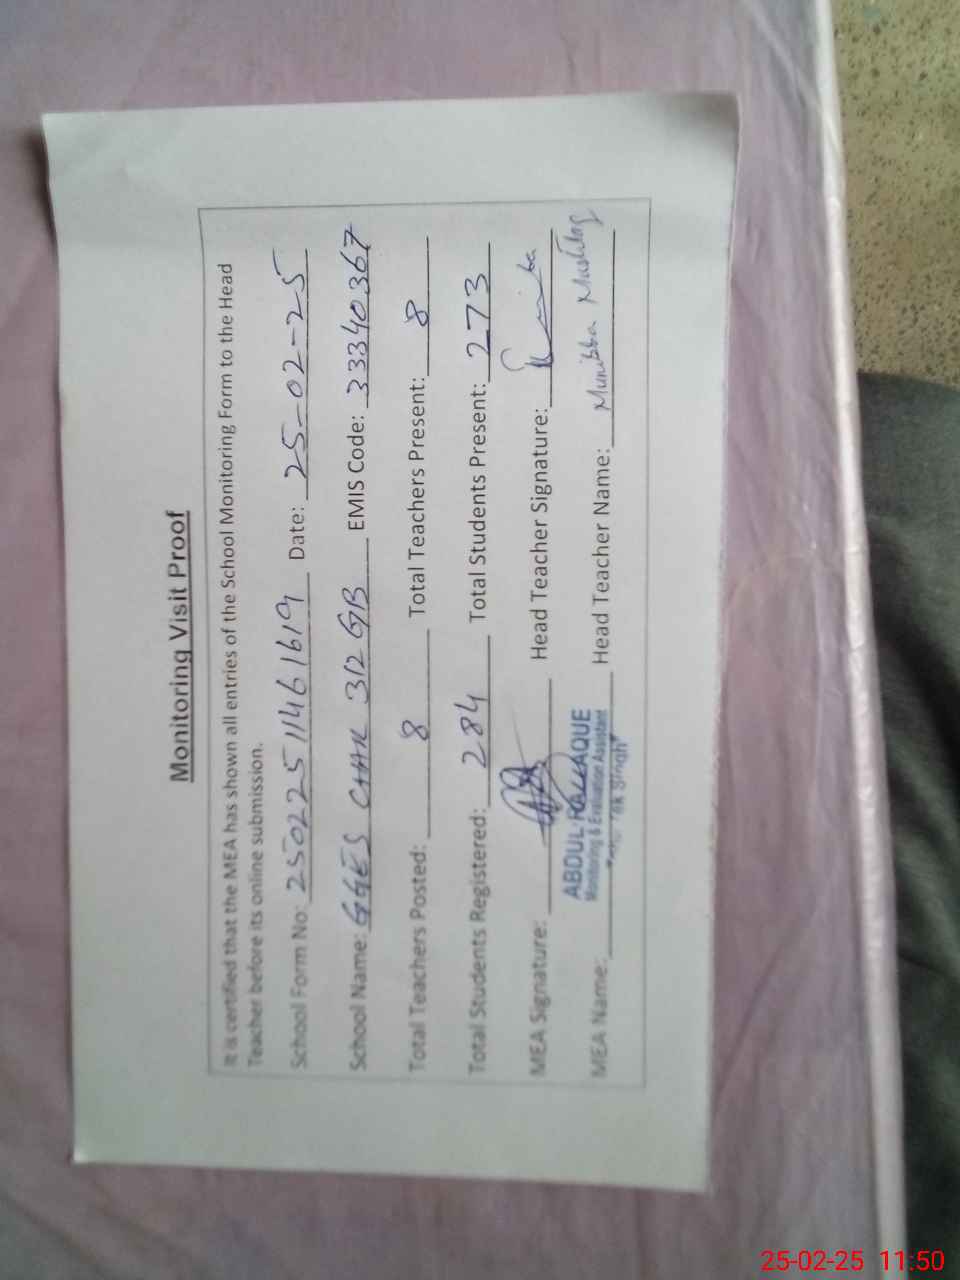 Monitoring Visit Proof
It is certified that the MEA has shown all entries of the School Monitoring Form to the Head
Teacher before its online submission.
School Form No: 25022511461619 Date: 25-02-25
School Name: GGES CHAK 312 GB EMIS Code: 33340367
Total Teachers Posted: 8 Total Teachers Present: 8
Total Students Registered: 284 Total Students Present: 273
MEA Signature: Head Teacher Signature:
ABDUL RAZZAQUE
Monitoring & Evaluation Assistant
Tek Singh
MEA Name: Head Teacher Name: Munibba Mushtaq
25-02-25 11:50